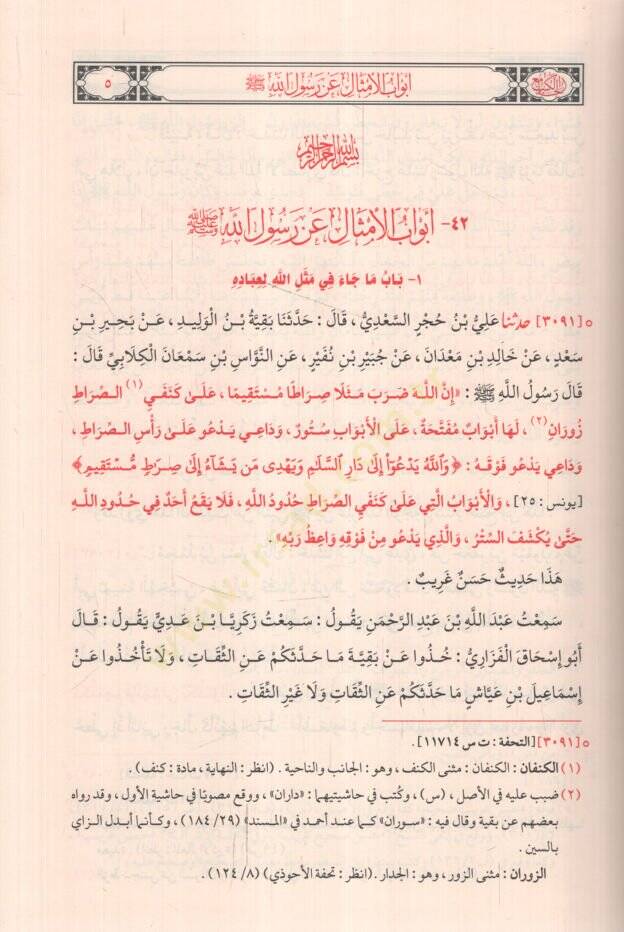 أبواب الأمثال عن رسول الله ﷺ
٥
بسم الله الرحمن الرحيم
٤٢- أبواب الأمثال عن رسول الله ﷺ
١- بَابُ مَا جَاءَ فِي مَثَلِ اللَّهِ لِعِبَادِهِ
٥ [٣٠٩١] حدثنا عَلِيُّ بْنُ حُجْرٍ السَّعْدِيُّ، قَالَ: حَدَّثَنَا بَقِيَّةُ بْنُ الْوَلِيدِ، عَنْ بَحِيرِ بْنِ
سَعْدٍ، عَنْ خَالِدِ بْنِ مَعْدَانَ، عَنْ جُبَيْرِ بْنِ نُفَيْرٍ، عَنِ النَّوَّاسِ بْنِ سَمْعَانَ الْكِلَابِيِّ قَالَ:
قَالَ رَسُولُ اللَّهِ ﷺ: «إِنَّ اللَّهَ ضَرَبَ مَثَلًا صِرَاطًا مُسْتَقِيمًا، عَلَىٰ كَنَفَيِ (١) الصِّرَاطِ
زُورَانِ (٢)، لَهَا أَبْوَابٌ مُفَتَّحَةٌ، عَلَى الْأَبْوَابِ سُتُورٌ، وَدَاعِي يَدْعُو عَلَىٰ رَأْسِ الصِّرَاطِ،
وَدَاعِي يَدْعُو فَوْقَهُ: ﴿وَاللَّهُ يَدْعُوٓا۟ إِلَىٰ دَارِ السَّلَٰمِ وَيَهْدِى مَن يَشَآءُ إِلَىٰ صِرَٰطٍ مُّسْتَقِيمٍ﴾
[يونس: ٢٥]، وَالْأَبْوَابُ الَّتِي عَلَىٰ كَنَفَيِ الصِّرَاطِ حُدُودُ اللَّهِ، فَلَا يَقَعُ أَحَدٌ فِي حُدُودِ اللَّهِ
حَتَّىٰ يُكْشَفَ السِّتْرُ، وَالَّذِي يَدْعُو مِنْ فَوْقِهِ وَاعِظُ رَبِّهِ».
هَذَا حَدِيثٌ حَسَنٌ غَرِيبٌ.
سَمِعْتُ عَبْدَ اللَّهِ بْنَ عَبْدِ الرَّحْمَنِ يَقُولُ: سَمِعْتُ زَكَرِيَّا بْنَ عَدِيٍّ يَقُولُ: قَالَ
أَبُو إِسْحَاقَ الْفَزَارِيُّ: خُذُوا عَنْ بَقِيَّةَ مَا حَدَّثَكُمْ عَنِ الثِّقَاتِ، وَلَا تَأْخُذُوا عَنْ
إِسْمَاعِيلَ بْنِ عَيَّاشٍ مَا حَدَّثَكُمْ عَنِ الثِّقَاتِ وَلَا غَيْرِ الثِّقَاتِ.
٥ [٣٠٩١] [التحفة: ت س ١١٧١٤].
(١) الكنفان: الكنفان: مثنى الكنف، وهو: الجانب والناحية. (انظر: النهاية، مادة: كنف).
(٢) ضبب عليه في الأصل، (س)، وكُتب في حاشيتيهما: «داران»، ووقع مصوبًا في حاشية الأول، وقد رواه
بعضهم عن بقية وقال فيه: «سوران» كما عند أحمد في «المسند» (٢٩/ ١٨٤)، وكأنما أبدل الزاي
بالسين.
الزوران: مثنى الزور، وهو: الجدار. (انظر: تحفة الأحوذي) (٨/ ١٢٤).